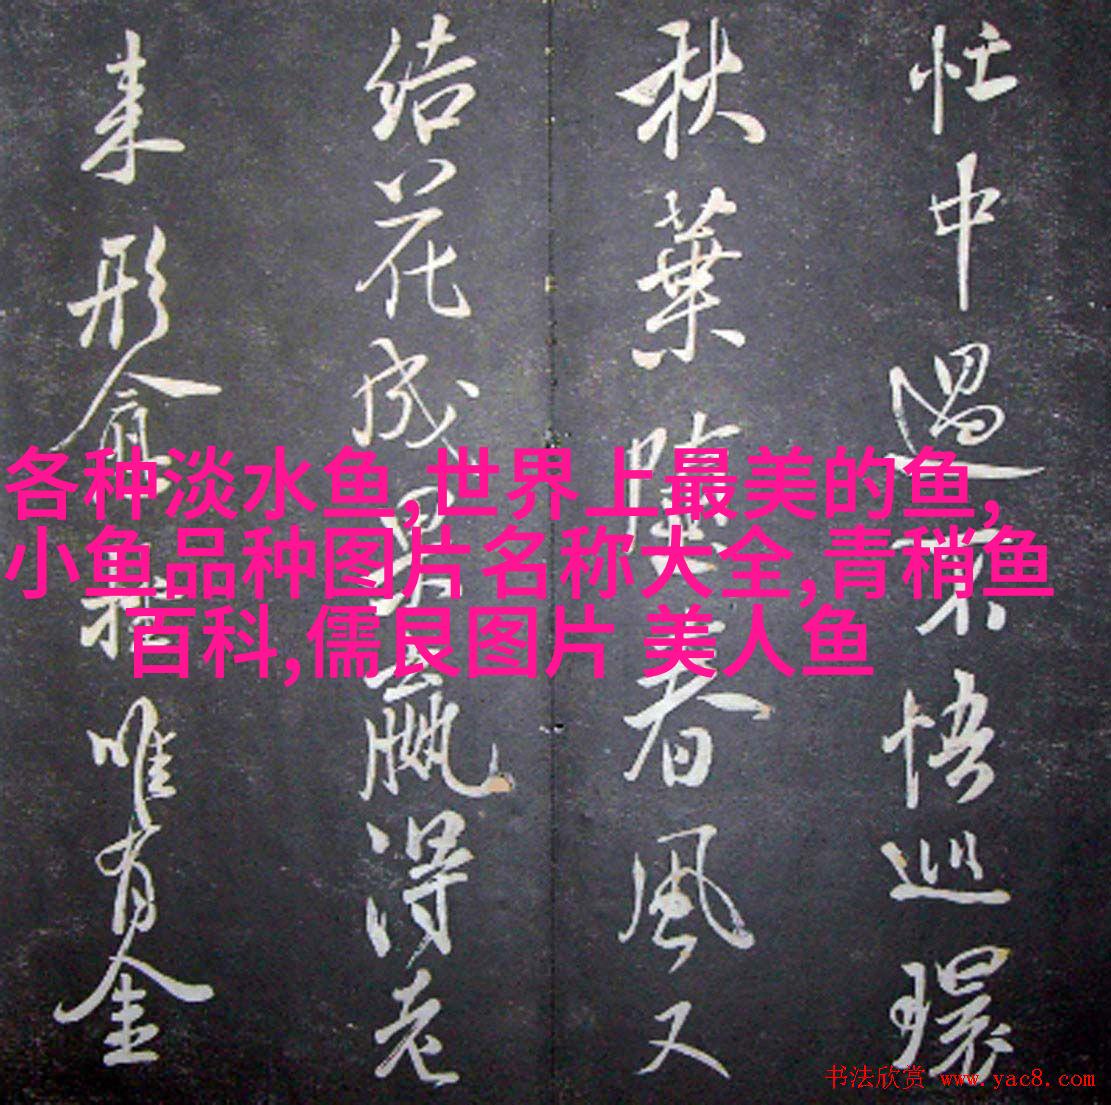 各种淡水鱼,世界上最美的鱼,
小鱼品种图片名称大全,青稍鱼
百科,儒艮图片 美人鱼
忙中過不悟巡環
秋葉春風又
結花成贏得老
来形唯有金
书法欣赏 www.yac8.com